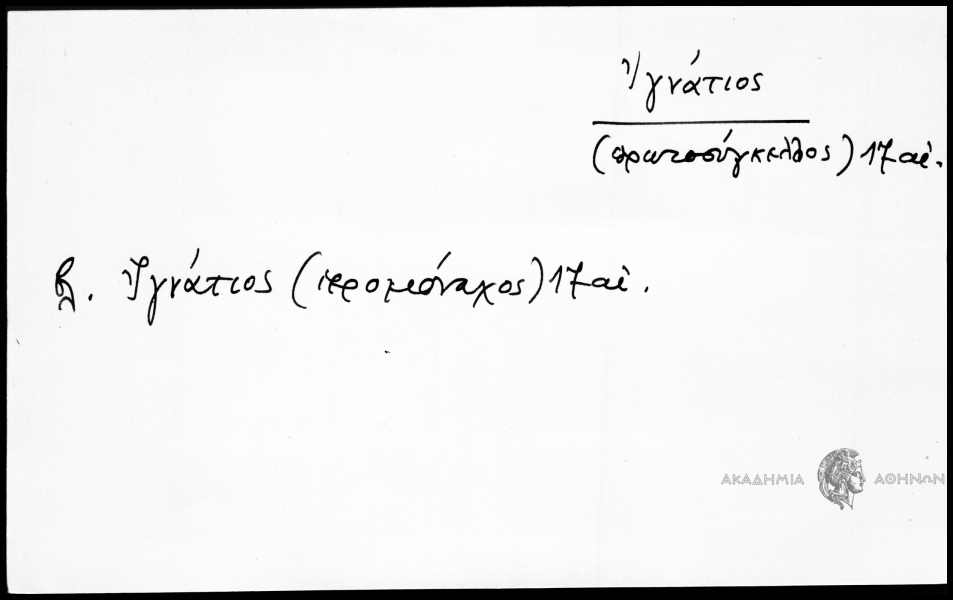 Ἰγνάτιος
(πρωτοσύγκελλος) 17 αἰ.
βλ. Ἰγνάτιος (ἱερομόναχος) 17 αἰ.
ΑΚΑΔΗΜΙΑ ΑΘΗΝΩΝ